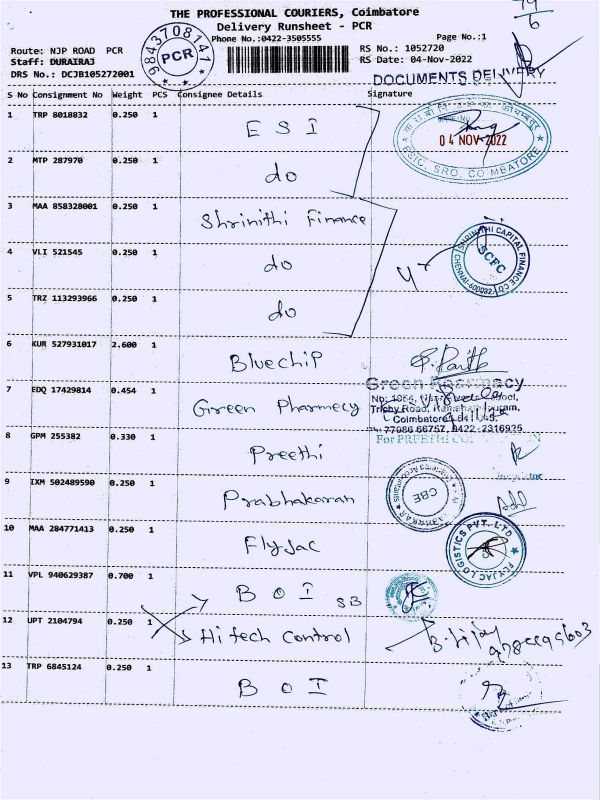 THE PROFESSIONAL COURIERS, Coimbatore
Delivery Runsheet - PCR
Phone No.:0422-3505555
Page No.:1
Route: NJP ROAD PCR
Staff: DURAIRAJ
DRS No.: DCJB105272001
RS No.: 1052720
RS Date: 04-Nov-2022
9843708141
PCR
79/6
DOCUMENTS DELIVERY
S No Consignment No Weight PCS Consignee Details Signature
1 TRP 8018832 0.250 1 E S I
04 NOV 2022
ESIC, SRO, COIMBATORE
2 MTP 287970 0.250 1 do
3 MAA 858328001 0.250 1 Shrinithi Finance
4 VLI 521545 0.250 1 do
SHRINITHI CAPITAL FINANCE CO
SCFC
CHENNAI-600032
5 TRZ 113293966 0.250 1 do
6 KUR 527931017 2.600 1 Bluechip
7 EDQ 17429814 0.454 1 Green Pharmecy
Green Pharmacy
Trichy Road, Ramanathapuram,
Coimbatore
77086 66757, 0422-2316925
8 GPM 255382 0.330 1 Preethi
For PREETHI
9 IXM 502489590 0.250 1 Prabhakaran
CBE
10 MAA 284771413 0.250 1 Flyjac
FLYJAC LOGISTICS PVT. LTD
11 VPL 940629387 0.700 1 B O I SB
12 UPT 2104794 0.250 1 Hi tech Control
13 TRP 6845124 0.250 1 B O I